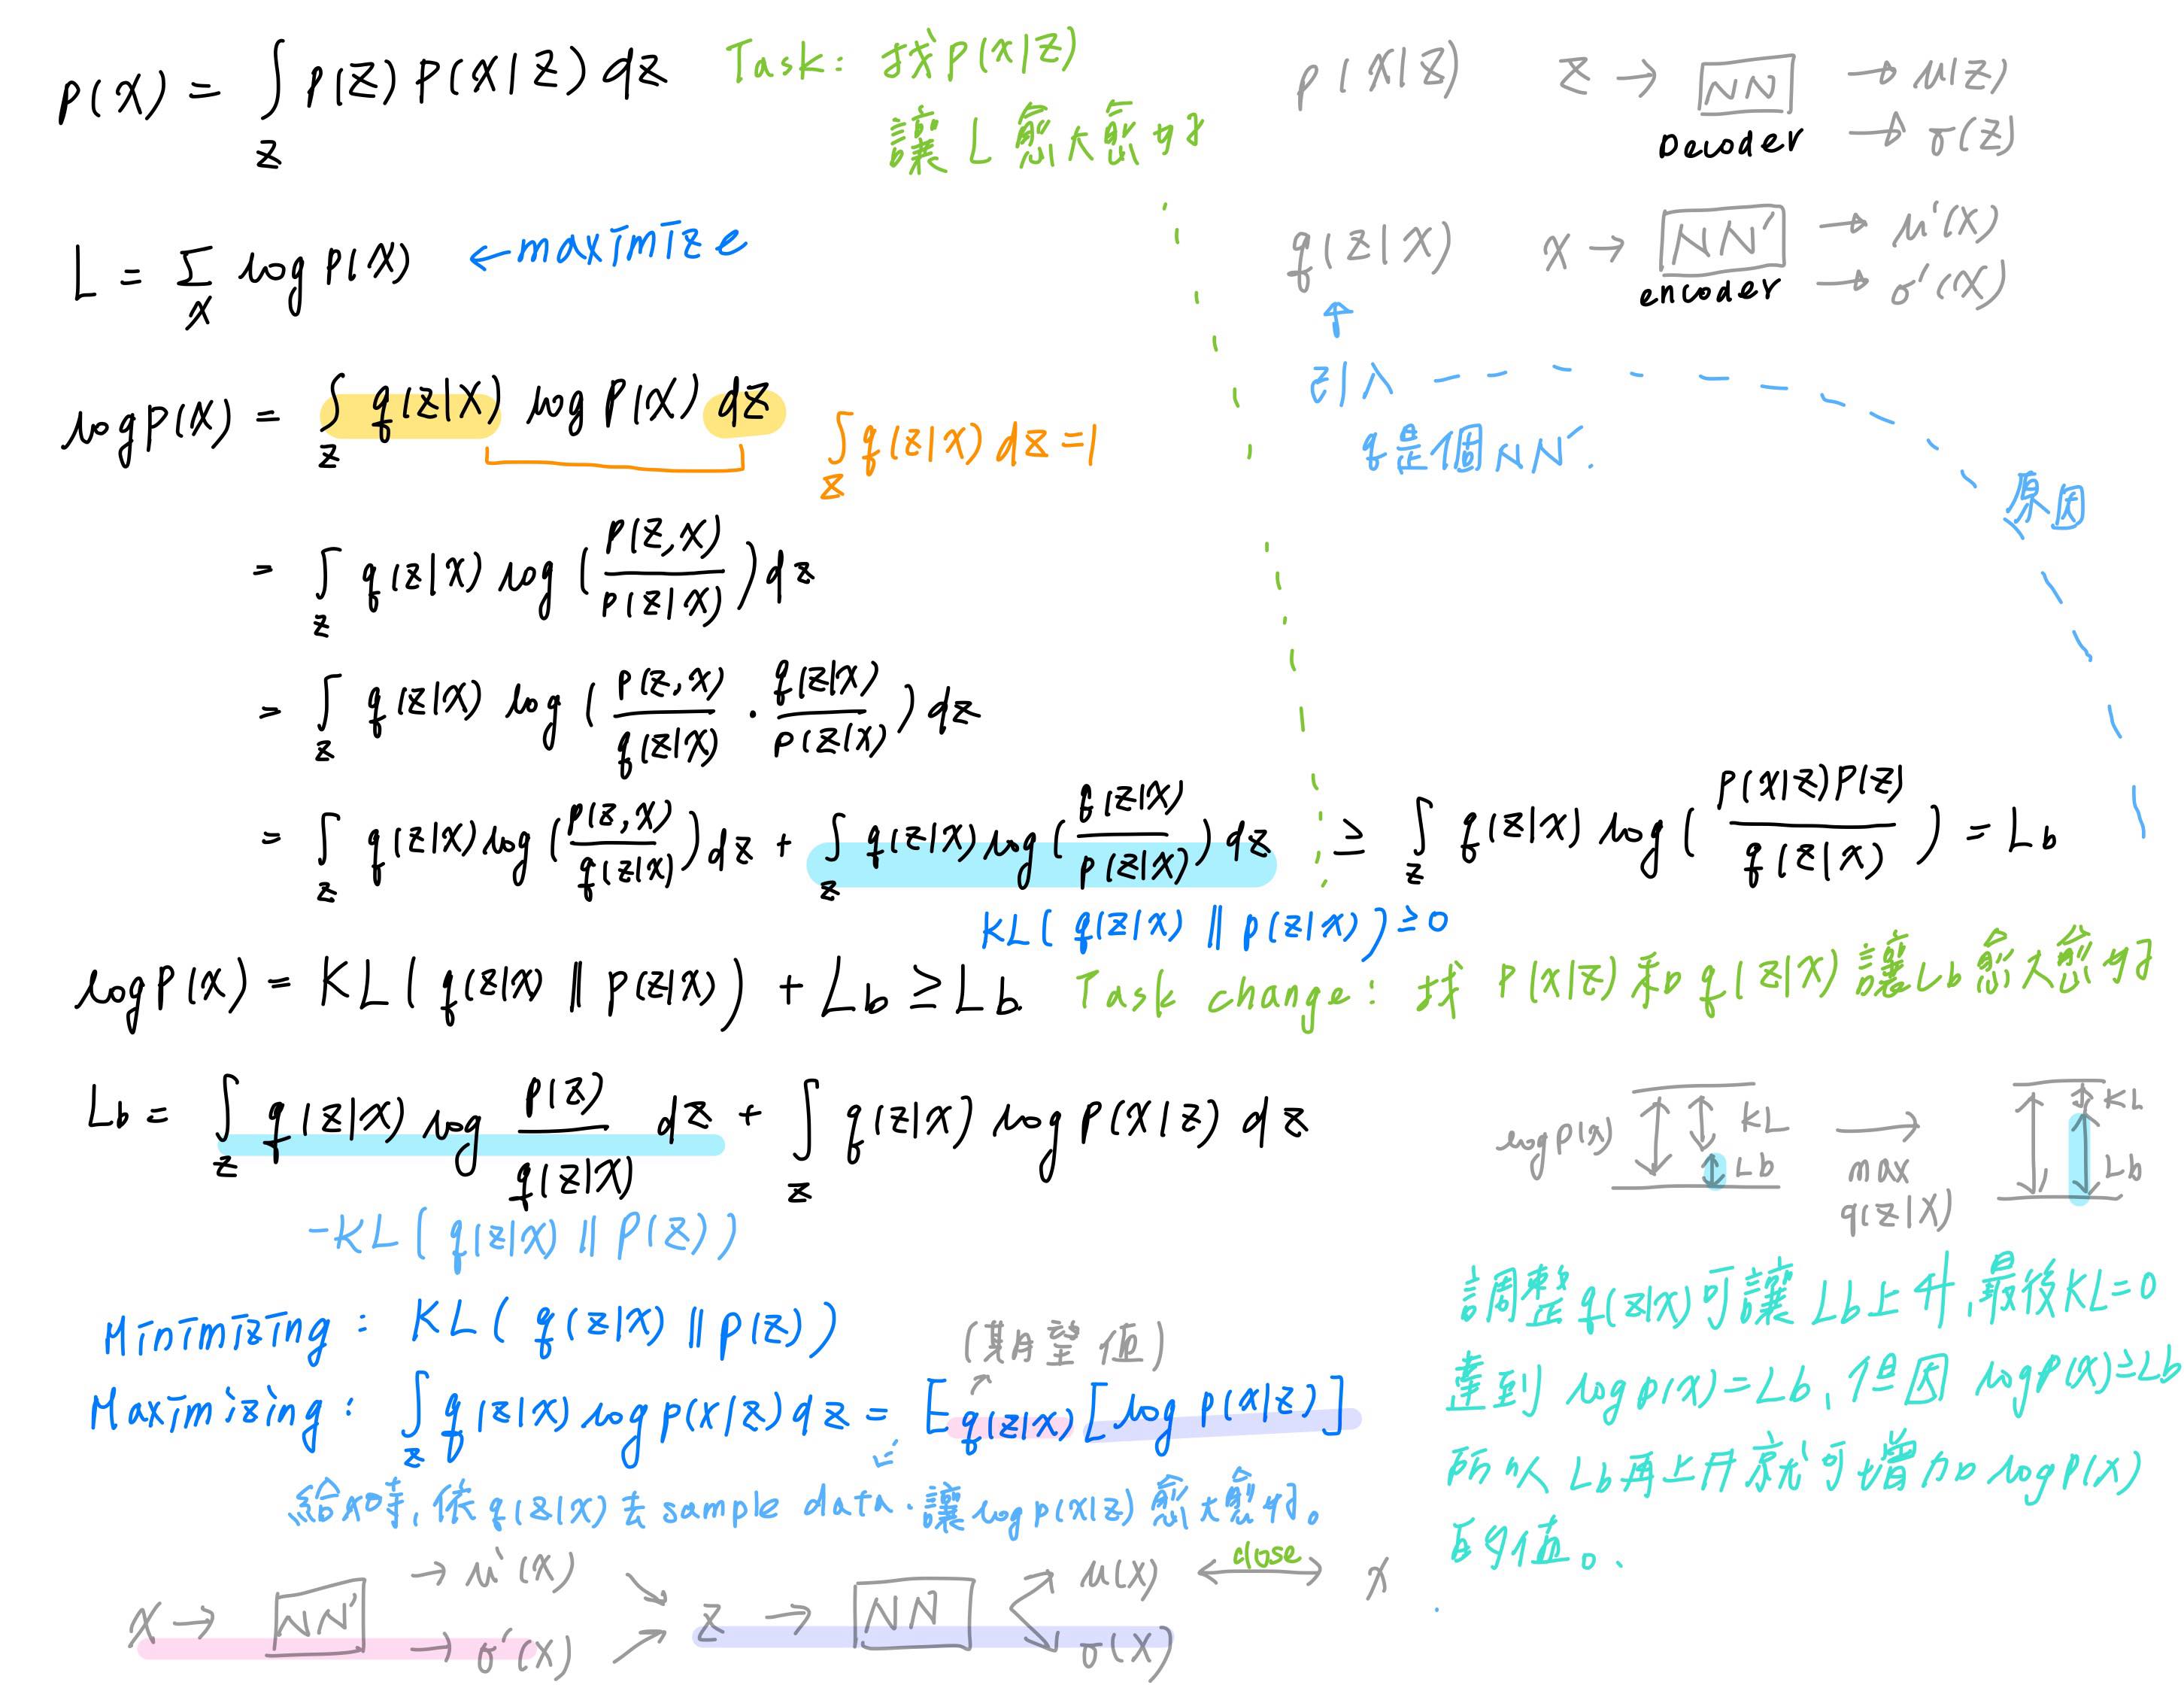 P(X) = ∫_z P(z) P(X|z) dz
Task: 找P(X|z)
讓 L 愈大愈好
P(X|z) z → NN → μ(z) → σ(z)
Decoder
L = Σ_X log P(X) ← maximize
q(z|X) X → NN' → μ'(X) → σ'(X)
encoder
引入
q是個NN'.
原因
log P(X) = ∫_z q(z|X) log P(X) dz
∫_z q(z|X) dz = 1
= ∫_z q(z|X) log ( P(z,X) / P(z|X) ) dz
= ∫_z q(z|X) log ( P(z,X) / q(z|X) · q(z|X) / P(z|X) ) dz
= ∫_z q(z|X) log ( P(z,X) / q(z|X) ) dz + ∫_z q(z|X) log ( q(z|X) / P(z|X) ) dz ≥ ∫_z q(z|X) log ( P(X|z) P(z) / q(z|X) ) = Lb
KL( q(z|X) || P(z|X) ) ≥ 0
log P(X) = KL( q(z|X) || P(z|X) ) + Lb ≥ Lb.
Task change: 找 P(X|z) 和 q(z|X) 讓Lb愈大愈好
Lb = ∫_z q(z|X) log P(z) / q(z|X) dz + ∫_z q(z|X) log P(X|z) dz
-KL( q(z|X) || P(z) )
log P(X) KL Lb → max q(z|X) KL Lb
Minimizing : KL( q(z|X) || P(z) )
(期望值)
Maximizing : ∫_z q(z|X) log P(X|z) dz = E_q(z|X) [ log P(X|z) ]
給X時,依q(z|X)去sample data.讓log P(X|z)愈大愈好。
調整q(z|X)可讓Lb上升,最後KL=0
達到 log P(X) = Lb, 但因 log P(X) ≥ Lb
所以Lb再上升就可增加log P(X)
的值。
X → NN' → μ'(X) → σ'(X) z → NN μ(X) σ(X) close X